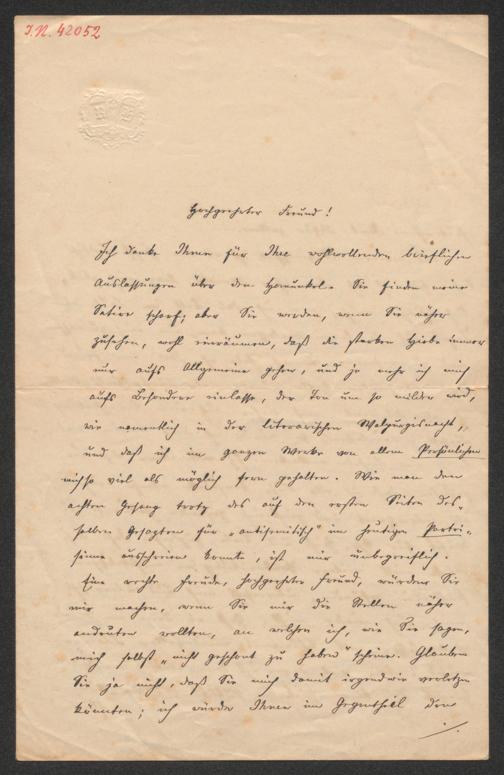 I.N. 42052
Hochgeehrter Freund!
Ich danke Ihnen für Ihre wohlwollenden brieflichen
Auslassungen über den Homunkel. Sie finden meine
Satire scharf; aber Sie werden, wenn Sie näher
zusehen, wohl einräumen, daß die starken Hiebe immer
nur aufs Allgemeine gehen, und je mehr ich mich
aufs Besondere einlasse, der Ton um so milder wird,
wie namentlich in der literarischen Walpurgisnacht,
und daß ich im ganzen Werke von allem Persönlichen
mich so viel als möglich fern gehalten. Wie man den
achten Gesang trotz des auf den ersten Seiten des-
selben Gesagten für „antisemitisch" im heutigen Partei-
sinne ausschreien konnte, ist mir unbegreiflich.
Eine rechte Freude, hochgeehrter Freund, würden Sie
mir machen, wenn Sie mir die Stellen näher
andeuten wollten, an welchen ich, wie Sie sagen,
mich selbst „nicht geschont zu haben" scheine. Glauben
Sie ja nicht, daß Sie mich damit irgendwie verletzen
könnten; ich würde Ihnen im Gegentheil den